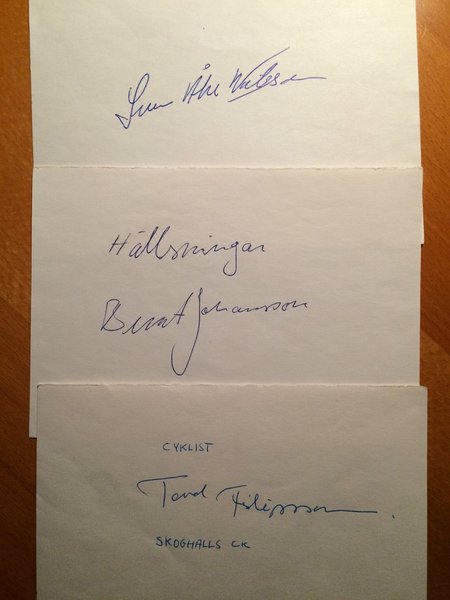 Sven Åke Nilsson
Hällsningar
Bernt Johansson
CYKLIST
Tord Filipsson
SKOGHALLS CK